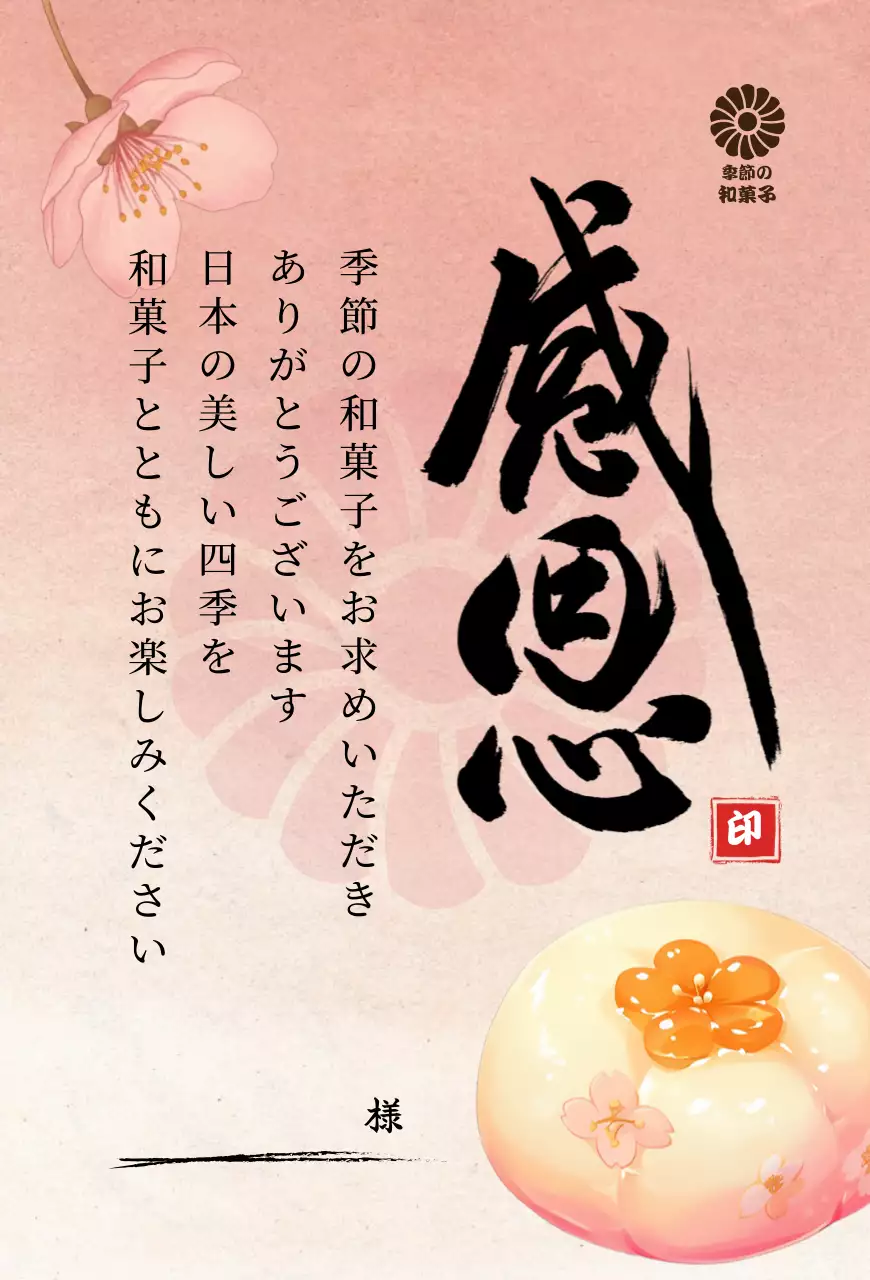 季節の
和菓子
感恩
印
季節の和菓子をお求めいただき
ありがとうございます
日本の美しい四季を
和菓子とともにお楽しみください
様